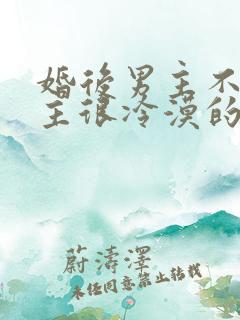 婚后男主不
主很冷漠的
蔚濤澤
未经同意禁止转载